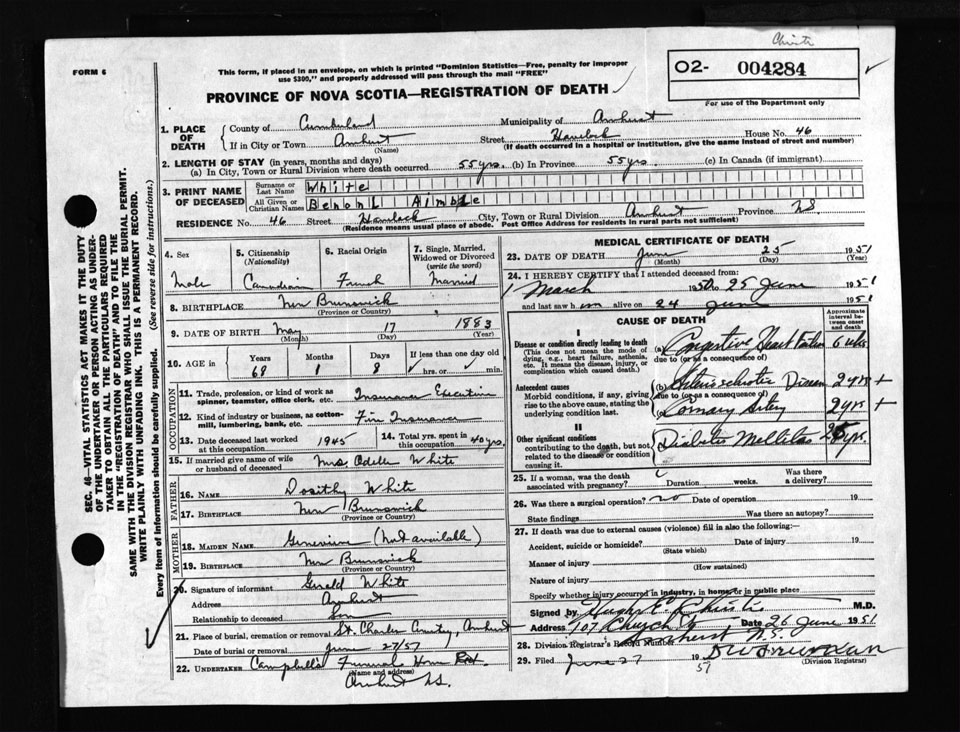 Christie
FORM 6
This form, if placed in an envelope, on which is printed "Dominion Statistics—Free, penalty for improper
use $300," and properly addressed will pass through the mail "FREE"
02- 004284
For use of the Department only
PROVINCE OF NOVA SCOTIA—REGISTRATION OF DEATH
1. PLACE OF DEATH
County of Cumberland Municipality of Amherst
If in City or Town Amherst Street Havelock House No. 46
(Name) (If death occurred in a hospital or institution, give the name instead of street and number)
2. LENGTH OF STAY (in years, months and days)
(a) In City, Town or Rural Division where death occurred 55 yrs. (b) In Province 55 yrs. (c) In Canada (if immigrant)
3. PRINT NAME OF DECEASED
Surname or Last Name White
All Given or Christian Names Benoni Aimble
RESIDENCE No. 46 Street Havelock City, Town or Rural Division Amherst Province N.S.
(Residence means usual place of abode. Post Office Address for residents in rural parts not sufficient)
4. Sex Male
5. Citizenship (Nationality) Canadian
6. Racial Origin French
7. Single, Married, Widowed or Divorced (write the word) Married
8. BIRTHPLACE New Brunswick
(Province or Country)
9. DATE OF BIRTH May 17 1883
(Month) (Day) (Year)
10. AGE in Years 68 Months 1 Days 8 If less than one day old hrs. or min.
OCCUPATION
11. Trade, profession, or kind of work as spinner, teamster, office clerk, etc. Insurance Executive
12. Kind of industry or business, as cotton-mill, lumbering, bank, etc. Fire Insurance
13. Date deceased last worked at this occupation 1945
14. Total yrs. spent in this occupation 40 yrs.
15. If married give name of wife or husband of deceased Mrs Odelle White
FATHER
16. NAME Dosithy White
17. BIRTHPLACE New Brunswick
(Province or Country)
MOTHER
18. MAIDEN NAME Genevieve (Not available)
19. BIRTHPLACE New Brunswick
(Province or Country)
20. Signature of informant Gerald White
Address Amherst
Relationship to deceased Son
21. Place of burial, cremation or removal St. Charles Cemetry, Amherst
Date of burial or removal June 27/51
22. UNDERTAKER Campbell's Funeral Home
(Name and address)
Amherst N.S.
MEDICAL CERTIFICATE OF DEATH
23. DATE OF DEATH June 25 1951
(Month) (Day) (Year)
24. I HEREBY CERTIFY that I attended deceased from:
1 March 1950 to 25 June 1951
and last saw him alive on 24 June 1951
CAUSE OF DEATH
Approximate interval between onset and death
I
Disease or condition directly leading to death
(This does not mean the mode of dying, e.g., heart failure, asthenia, etc. It means the disease, injury, or complication which caused death.)
(a) Congestive Heart Failure 6 wks
due to (or as a consequence of)
Antecedent causes
Morbid conditions, if any, giving rise to the above cause, stating the underlying condition last.
(b) Arteriosclerotic Disease 2 yrs +
due to (or as a consequence of)
Coronary Artery 2 yrs +
II
Other significant conditions
contributing to the death, but not related to the disease or condition causing it.
Diabetes Mellitus 25 yrs.
25. If a woman, was the death associated with pregnancy? Duration weeks. Was there a delivery?
26. Was there a surgical operation? no Date of operation 19
State findings Was there an autopsy?
27. If death was due to external causes (violence) fill in also the following:—
Accident, suicide or homicide? Date of injury 19
(State which)
Manner of injury
(How sustained)
Nature of injury
Specify whether injury occurred in industry, in home, or in public place
Signed by Hugh E. Christie M.D.
Address 107 Church St Date 26 June 1951
Amherst N.S.
28. Division Registrar's Record Number
29. Filed June 27 1951
(Division Registrar)
SEC. 44—VITAL STATISTICS ACT MAKES IT THE DUTY
OF THE UNDERTAKER OR PERSON ACTING AS UNDER-
TAKER TO OBTAIN ALL THE PARTICULARS REQUIRED
IN THE "REGISTRATION OF DEATH" AND TO FILE THE
SAME WITH THE DIVISION REGISTRAR WHO SHALL ISSUE THE BURIAL PERMIT.
WRITE PLAINLY WITH UNFADING INK. THIS IS A PERMANENT RECORD.
Every item of information should be carefully supplied. (See reverse side for instructions.)